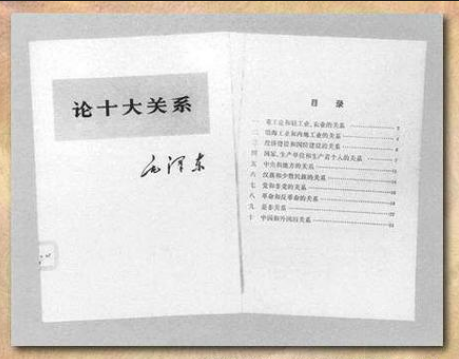 论十大关系
毛泽东
目 录
一 重工业和轻工业、农业的关系
二 沿海工业和内地工业的关系
三 经济建设和国防建设的关系
四 国家、生产单位和生产者个人的关系
五 中央和地方的关系
六 汉族和少数民族的关系
七 党和非党的关系
八 革命和反革命的关系
九 是非关系
十 中国和外国的关系